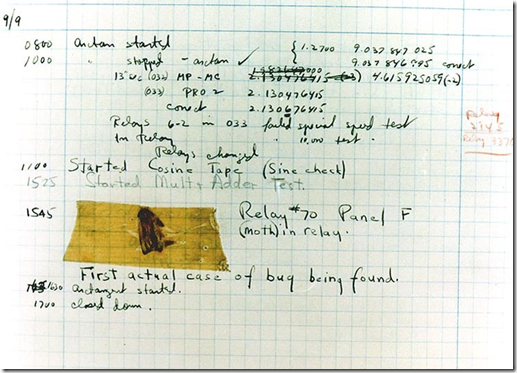 9/9
0800 antan started
1000 " stopped - antan ✓ { 1.2700 9.037 847 025
9.037 846 995 conect
13"uc (032) MP - MC 2.130476415 4.615925059(-2)
(033) PRO 2 2.130476415
conect 2.130676415
Relays 6-2 in 033 failed special speed test
In Relay " 10,000 test.
Relay
2145
Relay 3370
Relays changed
1100 Started Cosine Tape (Sine check)
1525 Started Mult + Adder Test.
1545 Relay #70 Panel F
(moth) in relay.
First actual case of bug being found.
1630 antangent started.
1700 closed down.